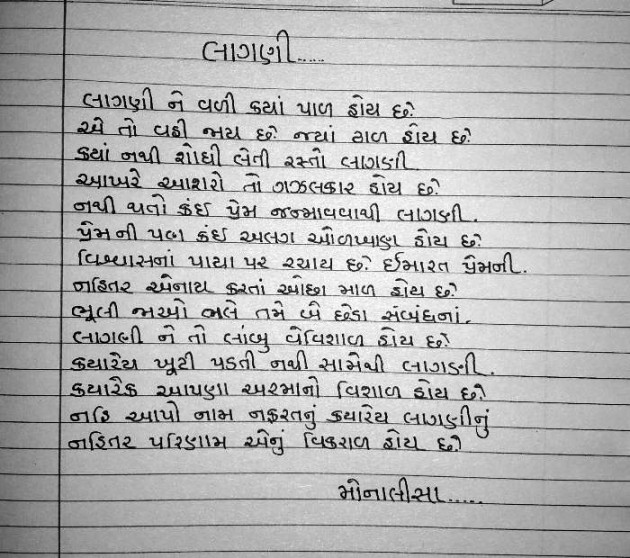 લાગણી.....
લાગણી ને વળી કયાં પાળ હોય છે?
એ તો વહી જાય છે જયાં ઢાળ હોય છે?
કયાં નથી શોધી લેતી રસ્તો લાગણી
આખરે આશરો તો ગઝલકાર હોય છે?
નથી થતો કંઈ પ્રેમ જન્માવવાથી લાગણી.
પ્રેમની પણ કંઈ અલગ ઓળખાણ હોય છે?
વિશ્વાસનાં પાયા પર રચાય છે? ઈમારત પ્રેમની.
નહિતર એનાય કરતાં ઓછા માળ હોય છે?
ભૂલી જાઓ ભલે તમે બે છેડા સંબંધનાં.
લાગણી ને તો લાંબુ વેવિશાળ હોય છે?
કયારેય ખૂટી પડતી નથી સામેથી લાગણી.
કયારેક આપણા અરમાનો વિશાળ હોય છે?
નહિ આપો નામ નફરતનું કયારેય લાગણીનું
નહિતર પરિણામ એનું વિકરાળ હોય છે?
મોનાલીસા.....